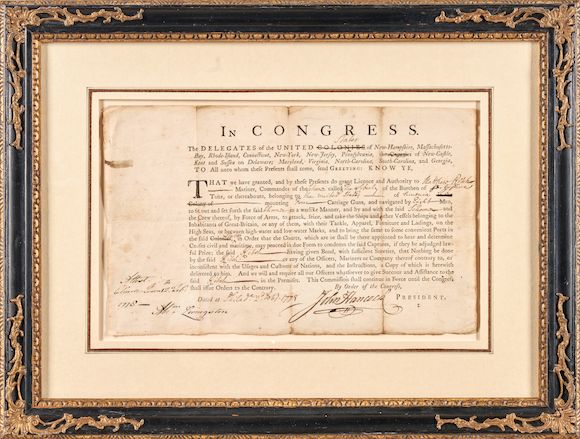 IN CONGRESS.
States
The DELEGATES of the UNITED COLONIES of New-Hampshire, Massachusetts-
Bay, Rhode-Island, Connecticut, New-York, New-Jersey, Pennsylvania, the Counties of New-Castle,
Kent and Sussex on Delaware; Maryland, Virginia, North-Carolina, South-Carolina, and Georgia,
TO All unto whom these Presents shall come, send GREETING: KNOW YE,
THAT we have granted, and by these Presents do grant Licence and Authority to
Mariner, Commander of the called of the Burthen of
Tuns, or thereabouts, belonging to the United States of America
Colony of mounting Four Carriage Guns, and navigated by Eight Men,
to fit out and set forth the said in a warlike Manner, and by and with the said and
the Crew thereof, by Force of Arms, to attack, seize, and take the Ships and other Vessels belonging to the
Inhabitants of Great-Britain, or any of them, with their Tackle, Apparel, Furniture and Ladings, on the
High Seas, or between high-water and low-water Marks, and to bring the same to some convenient Ports in
the said Colonies, in Order that the Courts, which are or shall be there appointed to hear and determine
Causes civil and maritime, may proceed in due Form to condemn the said Captures, if they be adjudged law-
ful Prize; the said having given Bond, with sufficient Sureties, that Nothing be done
by the said or any of the Officers, Mariners or Company thereof contrary to, or
inconsistent with the Usages and Customs of Nations, and the Instructions, a Copy of which is herewith
delivered to him. And we will and require all our Officers whatsoever to give Succour and Assistance to the
said in the Premises. This Commission shall continue in Force until the Congress
shall issue Orders to the Contrary.
By Order of the Congress,
Attest
Dated at 1778
John Hancock PRESIDENT.
1778
Livingston